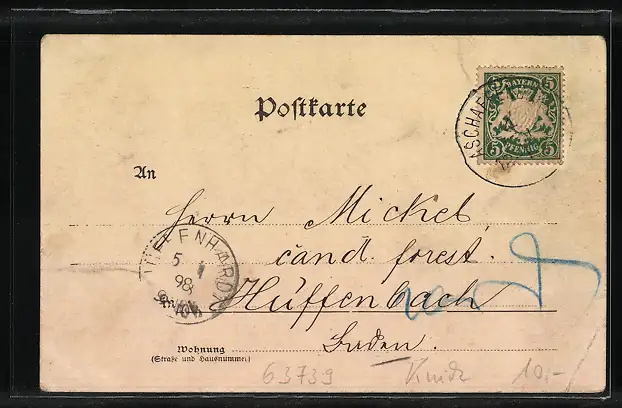 Postkarte
BAYERN
5 5
5 PFENNIG 5
ASCHAFF
An
Herrn Mickel,
cand. forest.
Hüffenbach
Baden.
5
98
Wohnung
(Straße und Hausnummer)
63739
10,-